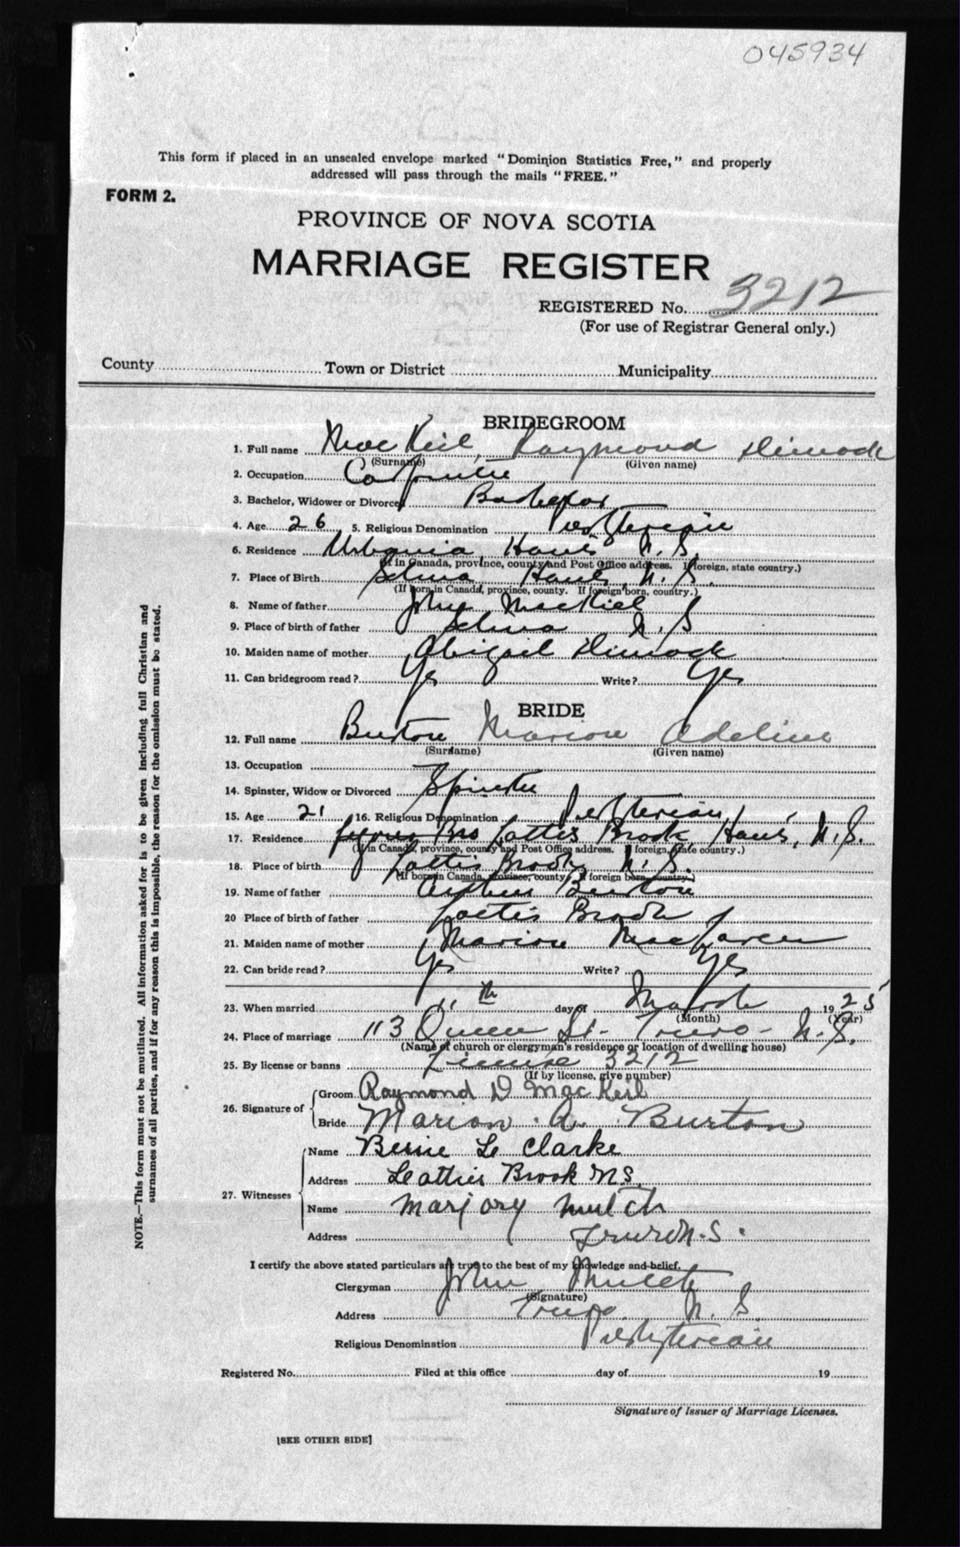 045934
This form if placed in an unsealed envelope marked "Dominion Statistics Free," and properly
addressed will pass through the mails "FREE."
FORM 2.
PROVINCE OF NOVA SCOTIA
MARRIAGE REGISTER
REGISTERED No. 3212
(For use of Registrar General only.)
County Town or District Municipality
BRIDEGROOM
1. Full name MacKeil, Raymond Dimock
(Surname) (Given name)
2. Occupation Carpenter
3. Bachelor, Widower or Divorced Bachelor
4. Age 26 5. Religious Denomination Presbyterian
6. Residence Urbania, Hants N.S.
(If in Canada, province, county and Post Office address. If foreign, state country.)
7. Place of Birth Selma, Hants, N.S.
(If born in Canada, province, county. If foreign born, country.)
8. Name of father John MacKiel
9. Place of birth of father Selma N.S
10. Maiden name of mother Abigail Dimock
11. Can bridegroom read? Yes Write? Yes
BRIDE
12. Full name Burton Marion Adeline
(Surname) (Given name)
13. Occupation
14. Spinster, Widow or Divorced Spinster
15. Age 21 16. Religious Denomination Presbyterian
17. Residence Brook, Hants, N.S.
(If in Canada, province, county and Post Office address. If foreign, state country.)
18. Place of birth Brook N.S.
(If born in Canada, province, county. If foreign born, country.)
19. Name of father Arthur Burton
20 Place of birth of father Brook
21. Maiden name of mother Marion MacLaren
22. Can bride read? Yes Write? Yes
23. When married 11th day of March 1925
(Month) (Year)
24. Place of marriage 113 Queen St. Truro - N.S.
(Name of church or clergyman's residence or location of dwelling house)
25. By license or banns License 3212
(If by license, give number)
26. Signature of Groom Raymond D MacKeil
Bride Marion A. Burton
27. Witnesses Name Bessie L Clarke
Address Brook N.S.
Name Marjory Mutch
Address Truro N.S.
I certify the above stated particulars are true to the best of my knowledge and belief.
Clergyman John Mutch
(Signature)
Address Truro, N.S.
Religious Denomination Presbyterian
Registered No. Filed at this office day of 19
Signature of Issuer of Marriage Licenses.
[SEE OTHER SIDE]
NOTE.—This form must not be mutilated. All information asked for is to be given including full Christian and
surnames of all parties, and if for any reason this is impossible, the reason for the omission must be stated.